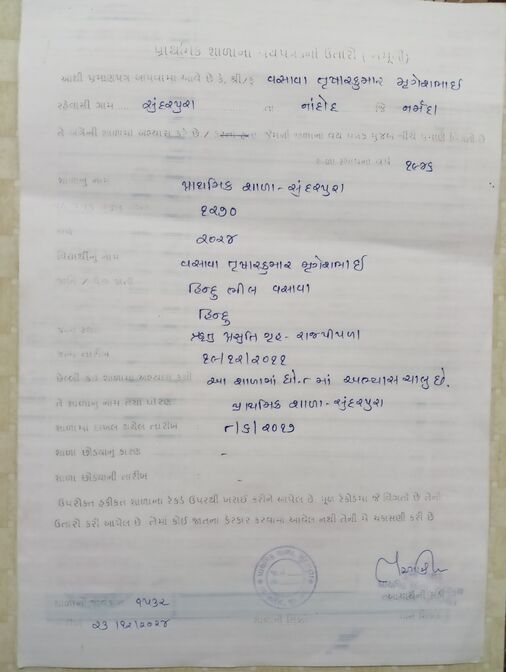 પ્રાથમિક શાળાના વયપત્રકનો ઉતારો ( નમૂનો )
આથી પ્રમાણપત્ર આપવામાં આવે છે કે, શ્રી/કુ વસાવા તૃષારકુમાર મૃગેશભાઈ
રહેવાસી ગામ .... સુંદરપુરા તા નાંદોદ જિ નર્મદા
તે અત્રેની શાળામાં અભ્યાસ કરે છે / જેમનો શાળાના વય પત્રક મુજબ નીચે પ્રમાણે વિગતો છે
શાળા સ્થાપના વર્ષ ૧૯૪૬
શાળાનું નામ પ્રાથમિક શાળા - સુંદરપુરા
૧૨૭૦
૨૦૨૪
વિદ્યાર્થીનું નામ વસાવા તૃષારકુમાર મૃગેશભાઈ
હિન્દુ ભીલ વસાવા
હિન્દુ
પ્રસુતિ ગૃહ - રાજપીપળા
જન્મ તારીખ ૧૯/૧૨/૨૦૧૧
આ શાળામાં ધો.૮ માં અભ્યાસ ચાલુ છે.
તે શાળાનું નામ તથા ધોરણ પ્રાથમિક શાળા - સુંદરપુરા
શાળામાં દાખલ થયેલ તારીખ ૮/૬/૨૦૧૭
શાળા છોડ્યાનું કારણ -
શાળા છોડ્યાની તારીખ -
ઉપરોક્ત હકીકત શાળાના રેકર્ડ ઉપરથી ખરાઈ કરીને આપેલ છે. મૂળ રેકોર્ડમાં જે વિગતો છે તેની
ઉતારો કરી આપેલ છે. તેમાં કોઈ જાતના ફેરફાર કરવામાં આવેલ નથી તેની મે ચકાસણી કરી છે
આચાર્યની સહી
૧૫૩૨
૨૩/૧૨/૨૦૨૪